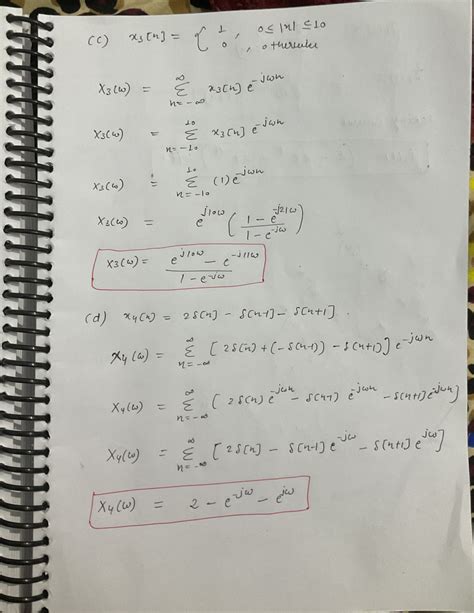 (c) x3[n] = { 1 , 0≤|n|≤10
0 , otherwise
X3(ω) = ∞ Σ n=-∞ x3[n] e^-jωn
X3(ω) = 10 Σ n=-10 x3[n] e^-jωn
X3(ω) = 10 Σ n=-10 (1) e^-jωn
X3(ω) = e^j10ω ( 1 - e^-j21ω / 1 - e^-jω )
X3(ω) = e^j10ω - e^-j11ω / 1 - e^-jω
(d) x4[n] = 2δ[n] - δ[n-1] - δ[n+1]
X4(ω) = ∞ Σ n=-∞ [ 2δ[n] + (-δ[n-1]) - δ[n+1] ] e^-jωn
X4(ω) = ∞ Σ n=-∞ [ 2δ[n] e^-jωn - δ[n-1] e^-jωn - δ[n+1] e^-jωn ]
X4(ω) = ∞ Σ n=-∞ [ 2δ[n] - δ[n-1] e^-jω - δ[n+1] e^jω ]
X4(ω) = 2 - e^-jω - e^jω